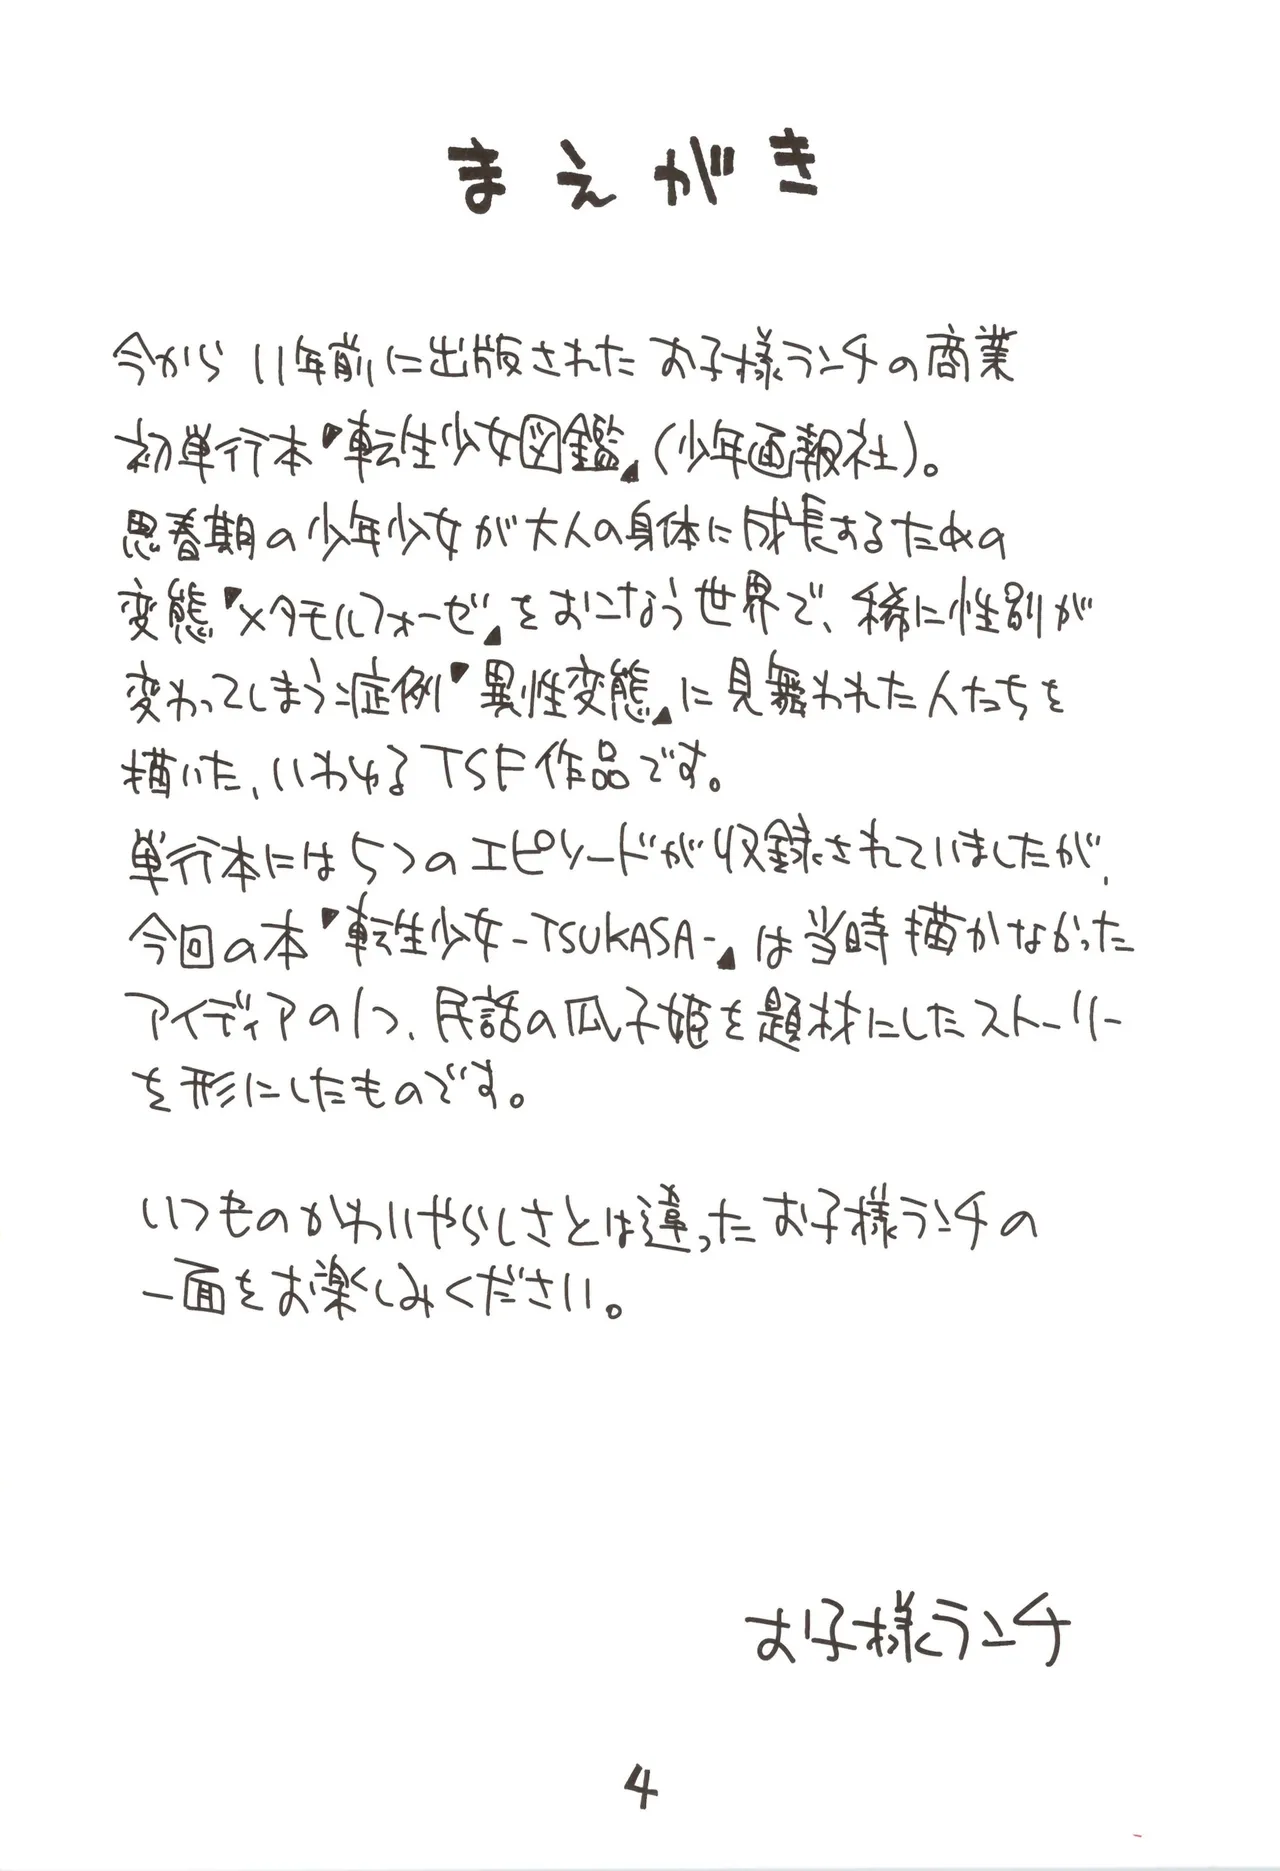 まえがき
今から11年前に出版されたお子様ランチの商業
初単行本『転生少女図鑑』(少年画報社)。
思春期の少年少女が大人の身体に成長するための
変態『メタモルフォーゼ』をおこなう世界で、稀に性別が
変わってしまう症例『異性変態』に見舞われた人たちを
描いた、いわゆるTSF作品です。
単行本には5つのエピソードが収録されていましたが、
今回の本『転生少女-TSUKASA-』は当時描かなかった
アイディアの1つ、民話の瓜子姫を題材にしたストーリー
を形にしたものです。
いつものかわいやらしさとは違ったお子様ランチの
一面をお楽しみください。
お子様ランチ
4